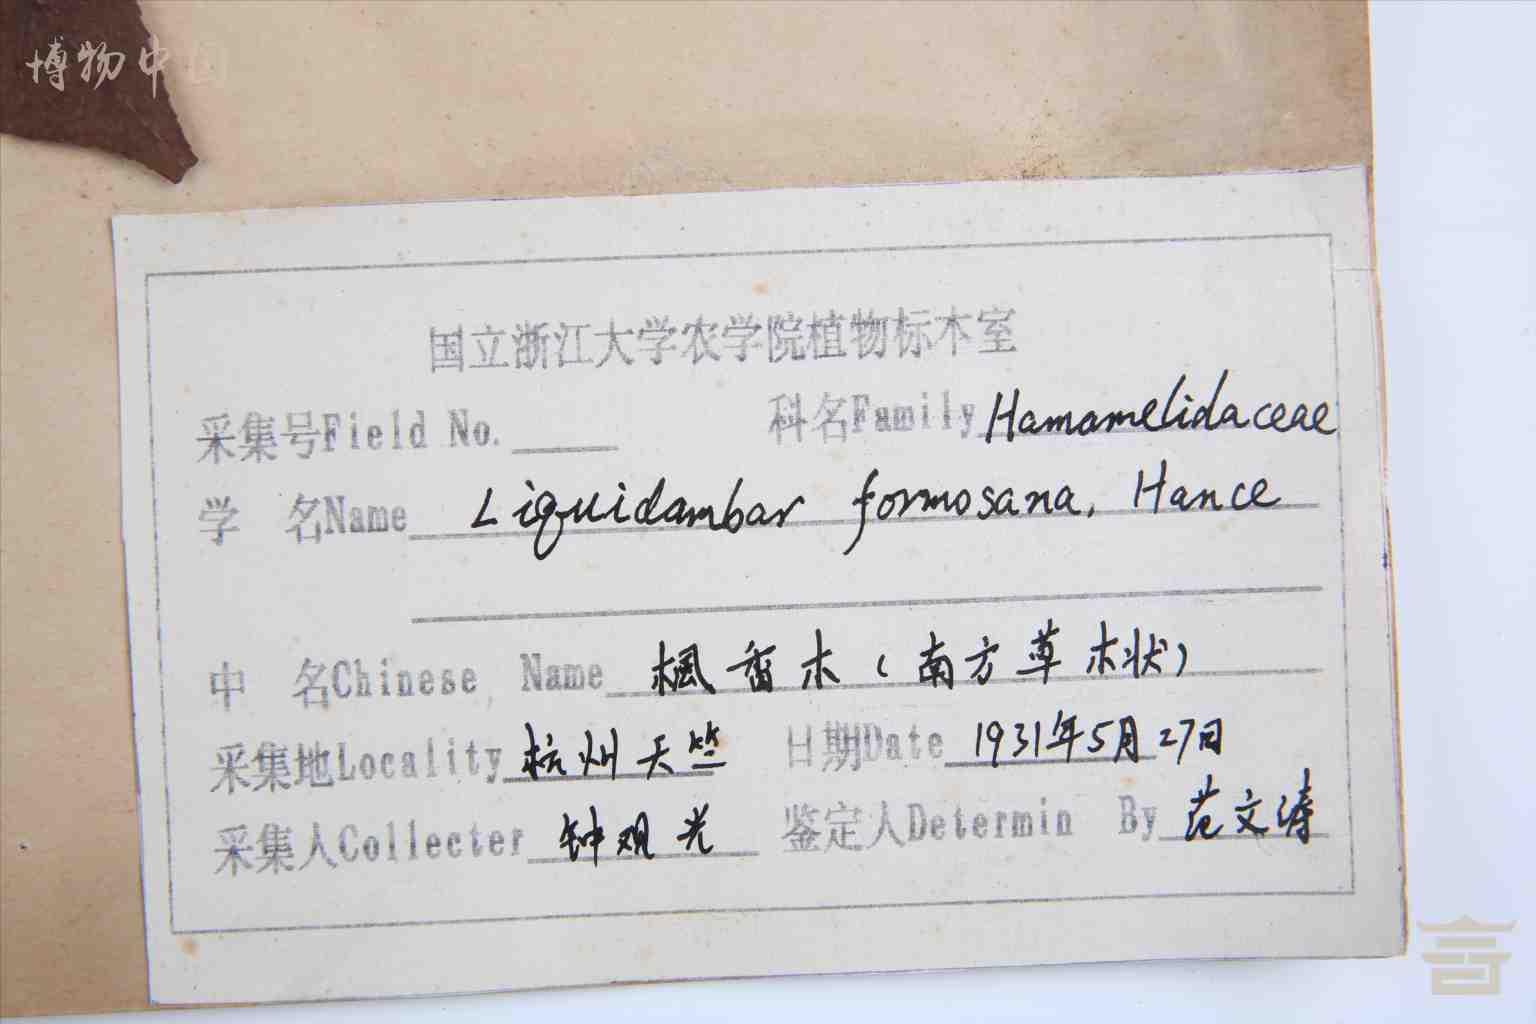 博物中国
国立浙江大学农学院植物标本室
采集号Field No. 科名Family Hamamelidaceae
学 名Name Liquidambar formosana, Hance
中 名Chinese Name 楓香木（南方草木状）
采集地Locality 杭州天竺 日期Date 1931年5月27日
采集人Collecter 钟观光 鉴定人Determin By 范文涛